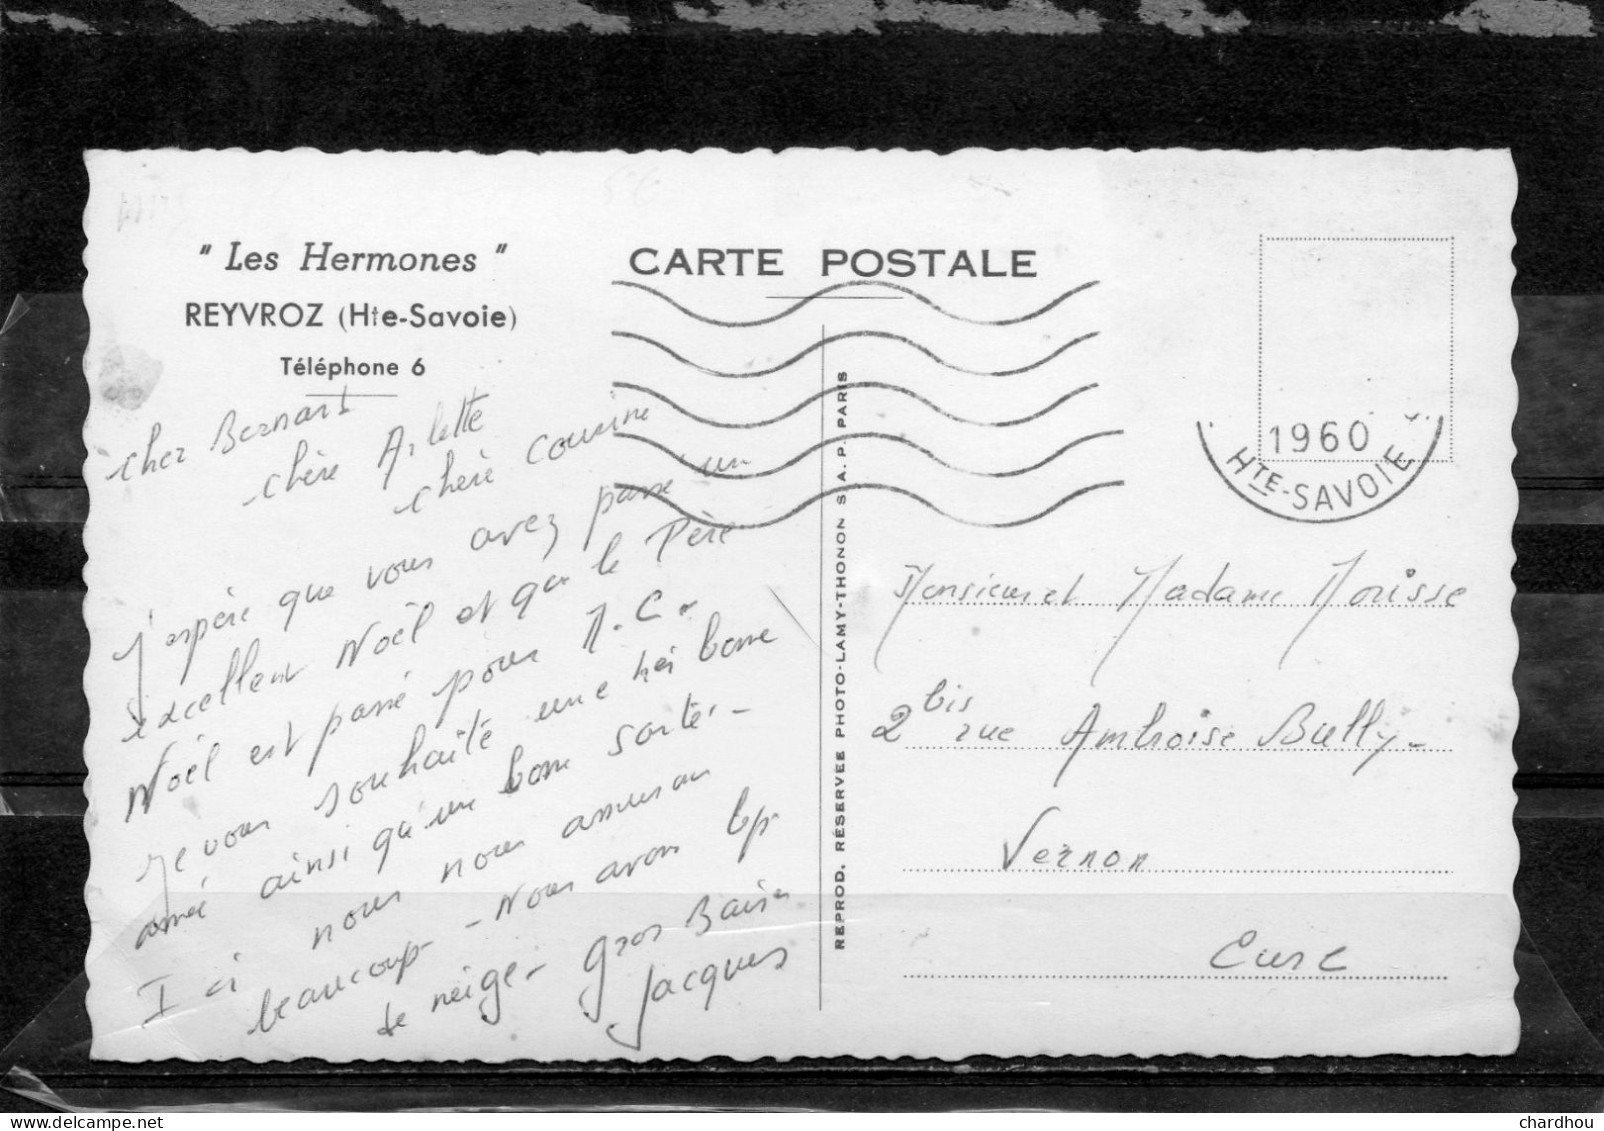 " Les Hermones "
REYVROZ (Hte-Savoie)
Téléphone 6
CARTE POSTALE
1960
HTE-SAVOIE
cher Bernard
chère Arlette
chère cousine
J'espère que vous avez passé un
excellent Noël et que le Père
Noël est passé pour M.C.
Je vous souhaite une très bonne
année ainsi qu'une bonne santé. -
Ici nous nous amusons
beaucoup - Nous avons bp
de neige - Gros Baisers
Jacques
REPROD. RÉSERVÉE PHOTO-LAMY-THONON S. A. P. PARIS
Monsieur et Madame Morisse
2 bis rue Ambroise Bully -
Vernon
Eure
chardhou